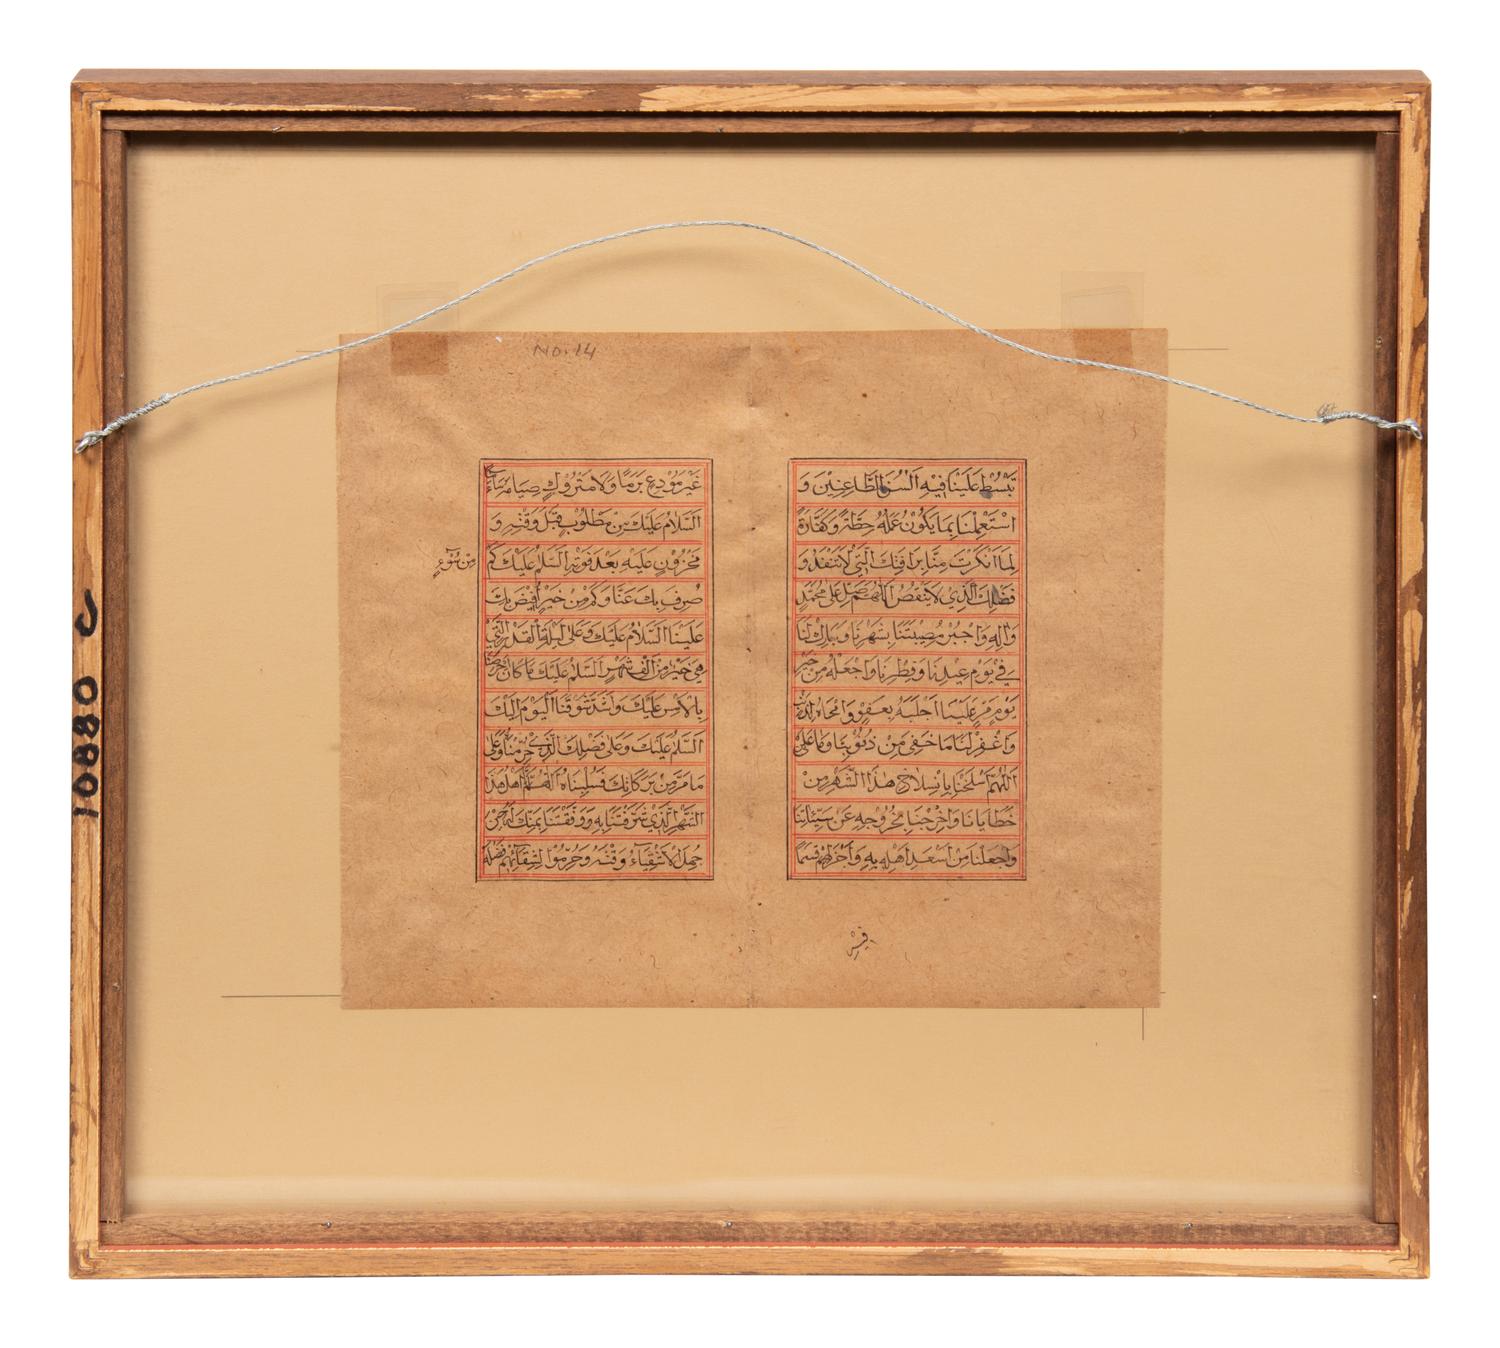 NO. 14
تَبْسُطْ عَلَيْنَا فِيْهِ اَلْسُنَ الطَّاعِنِيْنَ وَ
اسْتَعْمِلْنَا بِمَا يَكُوْنُ عَمَلُهُ حِطَّةً وَكَفَّارَةً
لِمَا اَنْكَرْتَ مِنَّا بِرَافَتِكَ الَّتِيْ لَا تَنْفَدُ وَ
فَضْلِكَ الَّذِيْ لَا يَنْقُصُ اَللّٰهُمَّ صَلِّ عَلٰى مُحَمَّدٍ
وَاٰلِهِ وَاجْبُرْ مُصِيْبَتَنَا بِشَهْرِنَا وَبَارِكْ لَنَا
فِيْ يَوْمِ عِيْدِنَا وَفِطْرِنَا وَاجْعَلْهُ مِنْ خَيْرِ
يَوْمٍ مَرَّ عَلَيْنَا اَجْلَبَهُ بِعَفْوٍ وَاَمْحَاهُ لِذَنْبٍ
وَاغْفِرْ لَنَا مَا خَفِيَ مِنْ ذُنُوْبِنَا وَمَا عَلَنَ
اَللّٰهُمَّ اسْلَخْنَا بِانْسِلَاخِ هٰذَا الشَّهْرِ مِنْ
خَطَايَانَا وَاَخْرِجْنَا بِخُرُوْجِهِ عَنْ سَيِّئَاتِنَا
وَاجْعَلْنَا مِنْ اَسْعَدِ اَهْلِهِ بِهِ وَاَجْزَلِهِمْ قِسْمًا
فِيْهِ
غَيْرَ مُوَدَّعٍ بَرَمًا وَلَا مَتْرُوْكٍ صِيَامُهُ سَاَمًا
اَلسَّلَامُ عَلَيْكَ مِنْ مَطْلُوْبٍ قَبْلَ وَقْتِهِ وَ
مَحْزُوْنٍ عَلَيْهِ بَعْدَ فَوْتِهِ اَلسَّلَامُ عَلَيْكَ كَمْ
مِنْ سُوْءٍ
صُرِفَ بِكَ عَنَّا وَكَمْ مِنْ خَيْرٍ اُفِيْضَ بِكَ
عَلَيْنَا اَلسَّلَامُ عَلَيْكَ وَعَلٰى لَيْلَةِ الْقَدْرِ الَّتِيْ
هِيَ خَيْرٌ مِنْ اَلْفِ شَهْرٍ اَلسَّلَامُ عَلَيْكَ مَا كَانَ اَحْرَصَنَا
بِالْاَمْسِ عَلَيْكَ وَاَشَدَّ شَوْقَنَا الْيَوْمَ اِلَيْكَ
اَلسَّلَامُ عَلَيْكَ وَعَلٰى فَضْلِكَ الَّذِيْ حُرِّمْنَاهُ وَعَلٰى
مَا مَرَّ مِنْ بَرَكَاتِكَ فَسُلِبْنَاهُ اَللّٰهُمَّ اِنَّا اَهْلُ هٰذَا
الشَّهْرِ الَّذِيْ شَرَّفْتَنَا بِهِ وَوَفَّقْتَنَا بِمَنِّكَ لَهُ حِيْنَ
جَهِلَ الْاَشْقِيَاءُ وَقْتَهُ وَحُرِمُوْا لِشِقَائِهِمْ فَضْلَهُ
10880 C